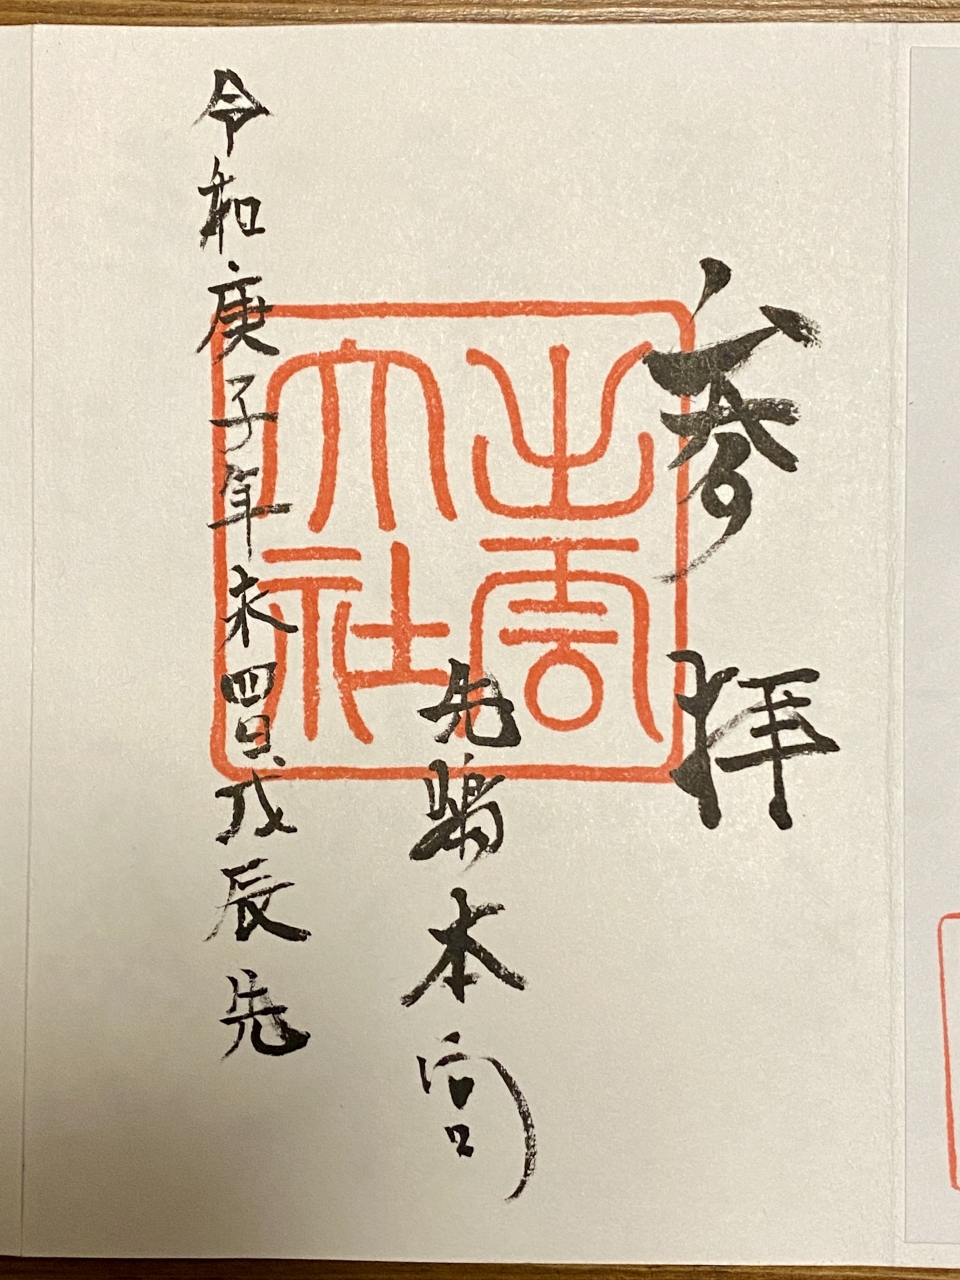 参拝
出雲
大社
先嶋本宮
令和庚子年四日戊辰先